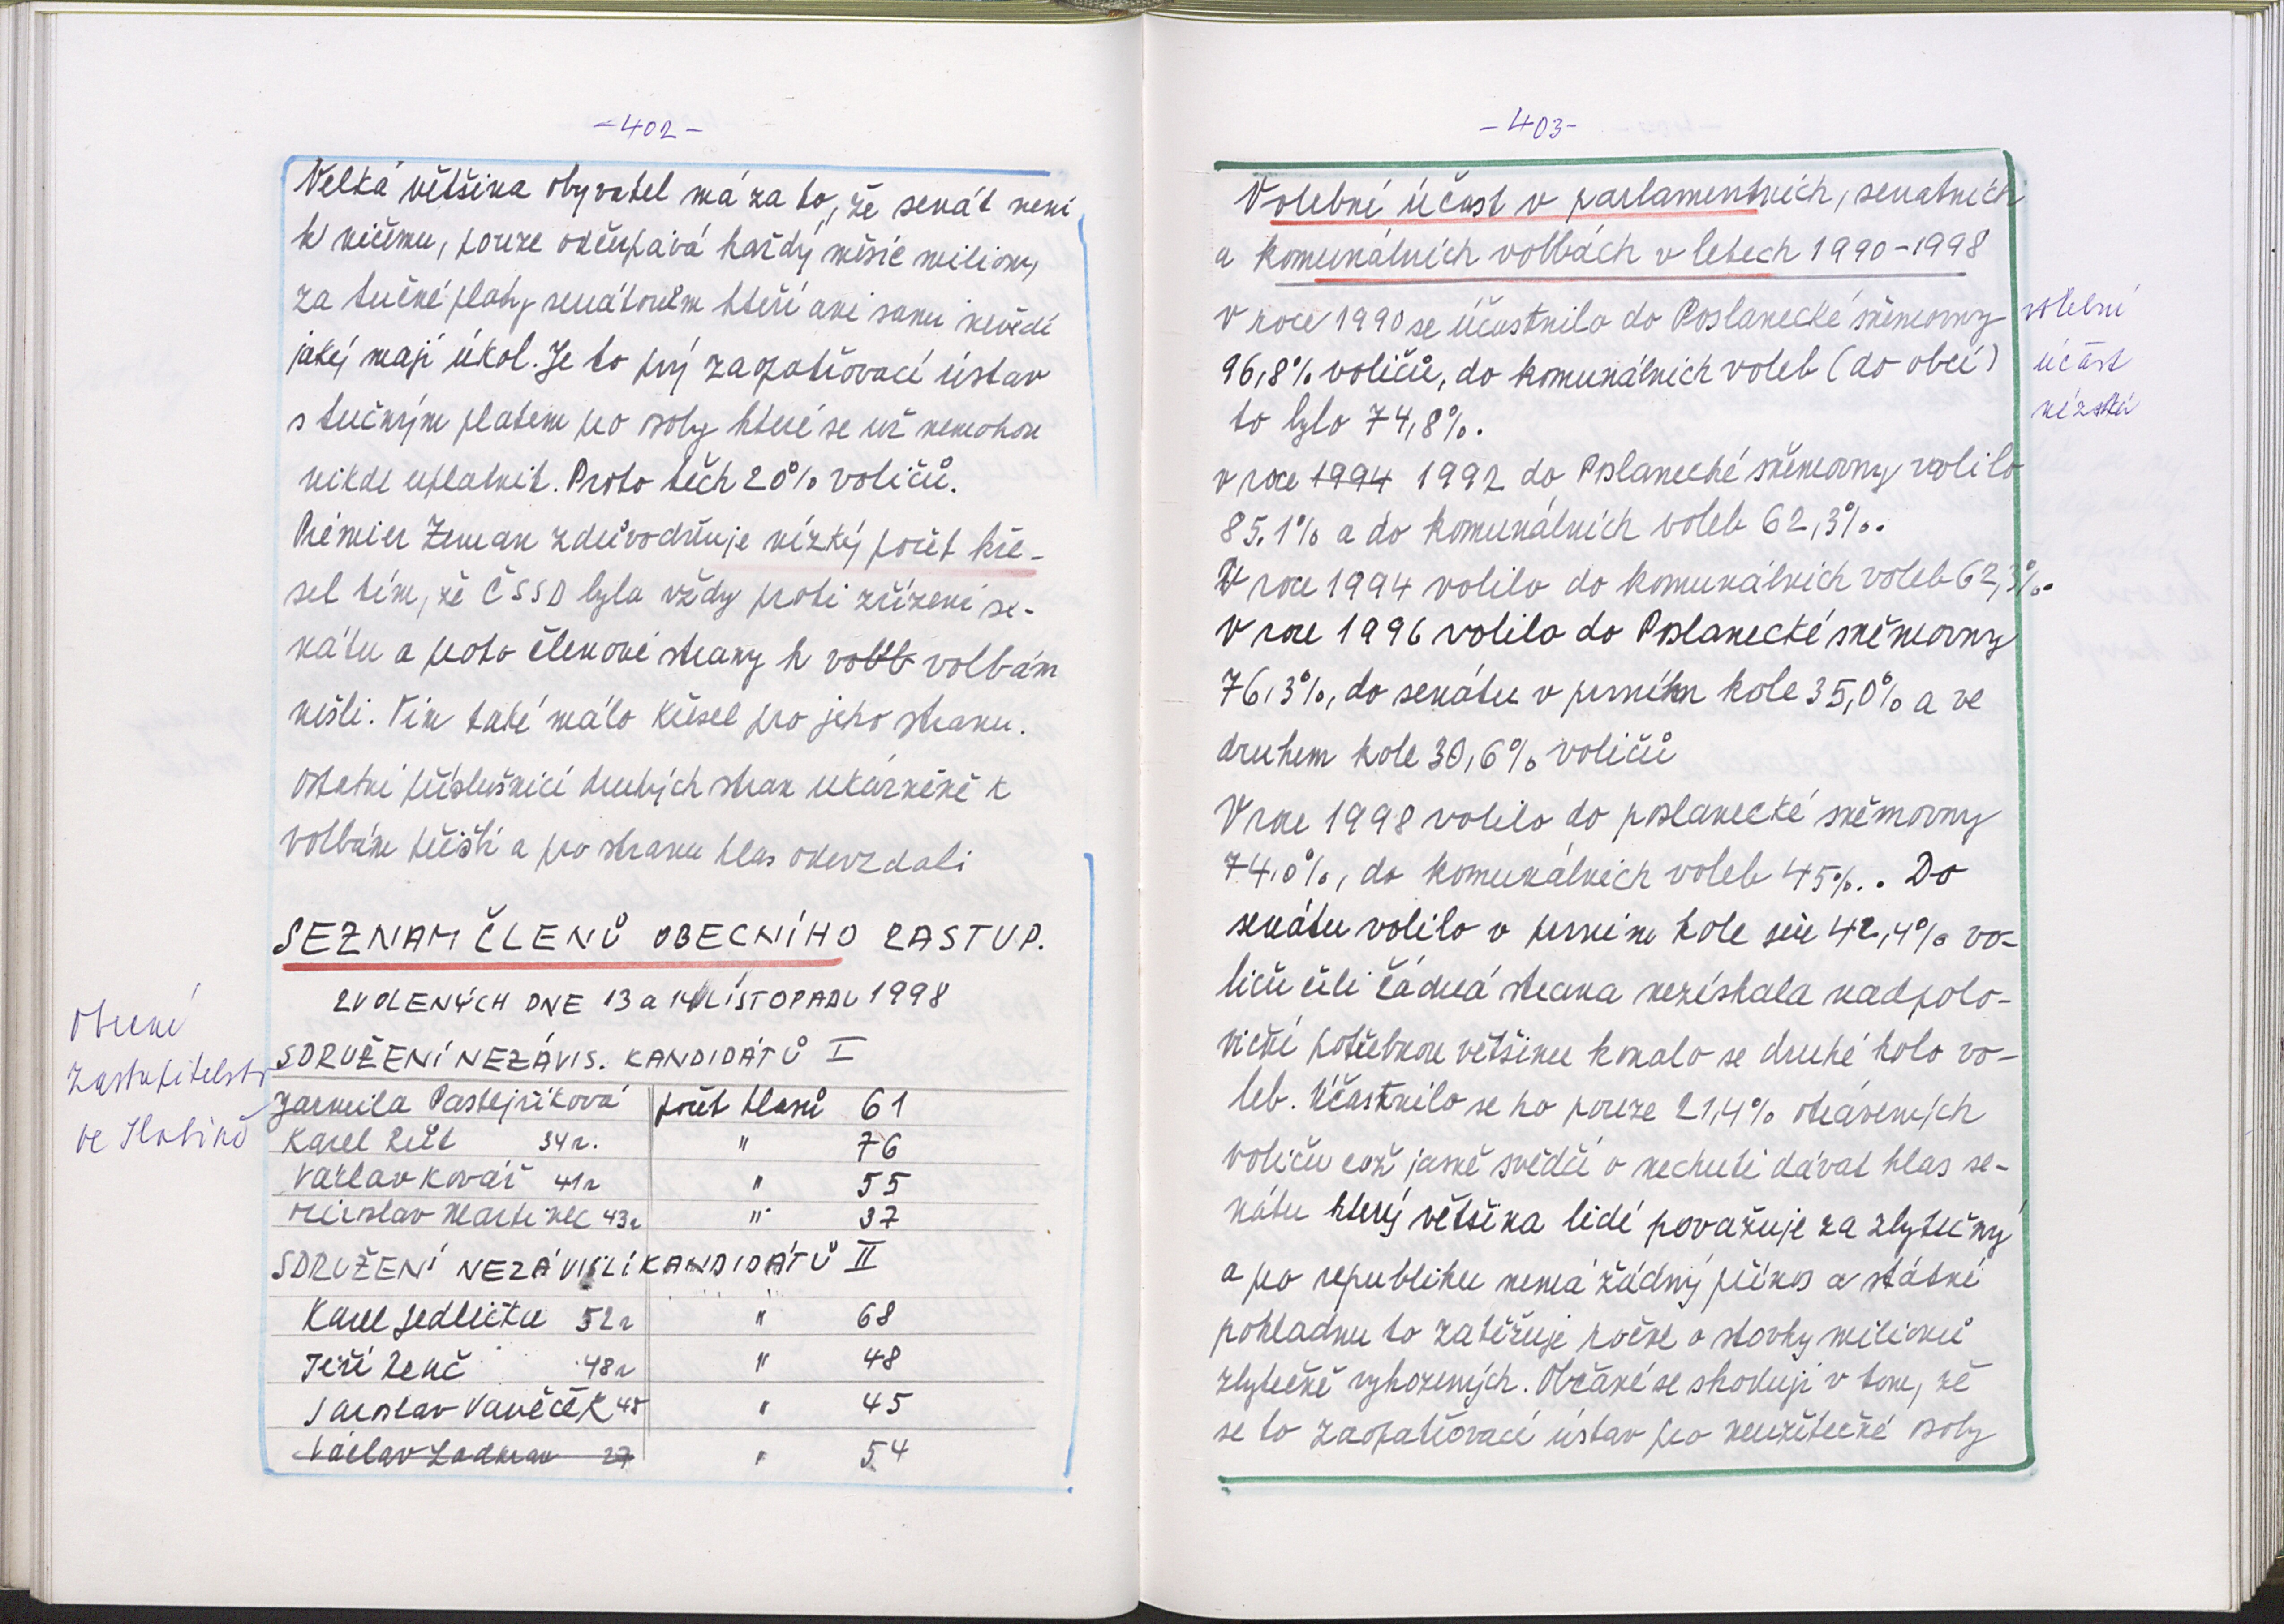 -402-
Velká většina obyvatel má za to, že senát neni
k ničemu, pouze odčerpává každý měsíc miliony
za tučné platy senátorům kteří ani sami nevědí
jaký mají úkol. Je to prý zaopatřovací ústav
s tučným platem pro osoby které se už nemohou
nikde uplatnit. Proto těch 20% voličů.
Premier Zeman zdůvodňuje nízký počet kře-
sel tím, že ČSSD byla vždy proti zřízení se-
nátu a proto členové strany k voleb volbám
nešli. Tím také málo křesel pro jeho stranu.
Ostatní příslušníci druhých stran ukázněně k
volbám přišli a pro stranu hlas odevzdali
SEZNAM ČLENŮ OBECNÍHO ZASTUP.
ZVOLENÝCH DNE 13 a 14 LÍSTOPADU 1998
Obecní
zastupitelstv
ve
SDRUŽENÍ NEZÁVIS. KANDIDÁTŮ I
Jarmila Pastejříková počet hlasů 61
Karel 34 r. " 76
Václav Kovář 41 r " 55
Miroslav Martinec 43 r " 37
SDRUŽENÍ NEZÁVISLÍ KANDIDÁTŮ II
Karel Jedlička 52 r " 68
Jiří Zenč 48 r " 48
Jaroslav Vaněček 48 " 45
Václav Ladman 27 " 54
-403-
Volební účast v parlamentních, senatních
a komunálních volbách v letech 1990-1998
v roce 1990 se účastnilo do Poslanecké sněmovny
96,8% voličů, do komunálních voleb (do obcí)
to bylo 74,8%.
volební
účast
nízká
v roce 1994 1992 do Poslanecké sněmovny volilo
85.1% a do komunálních voleb 62,3%.
V roce 1994 volilo do komunálních voleb 62,3%.
V roce 1996 volilo do Poslanecké sněmovny
76,3%, do senátu v prvním kole 35,0% a ve
druhem kole 30,6% voličů
V roce 1998 volilo do poslanecké sněmovny
74,0%, do komunálních voleb 45%.. Do
senátu volilo v prvním kole 42,4% vo-
ličů čili žádná strana nezískala nadpolo-
viční potřebnou většinu konalo se druhé kolo vo-
leb. Účastnilo se ho pouze 21,4% oprávených
voličů což jasně svědčí o nechuti dávat hlas se-
nátu který většina lidí považuje za zbytečný
a pro republiku nemá žádný přínos a státní
pokladnu to zatěžuje ročně o stovky milionů
zbytečně vyhozených. Občané se shodují v tom, že
se to zaopatřovací ústav pro neužitečné osoby